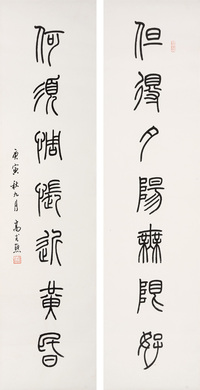 但得夕陽無限好
何須惆悵近黃昏
庚寅秋九月 高式熊